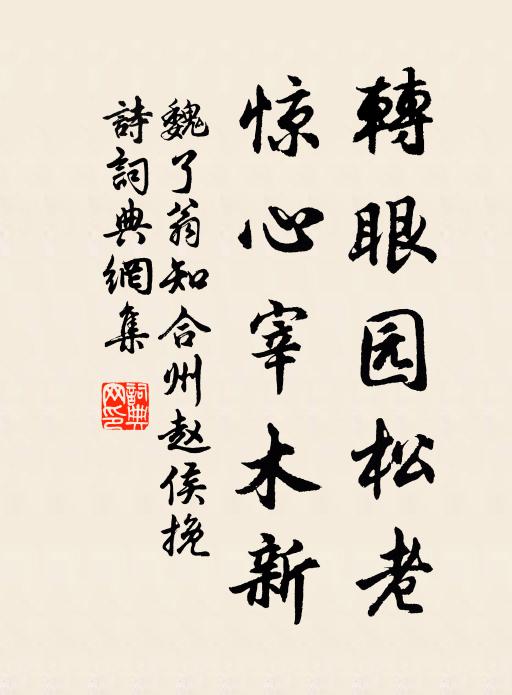 轉眼园松老
惊心宰木新
魏了翁知合州赵侯挽
詩詞典網集
詞典
网印